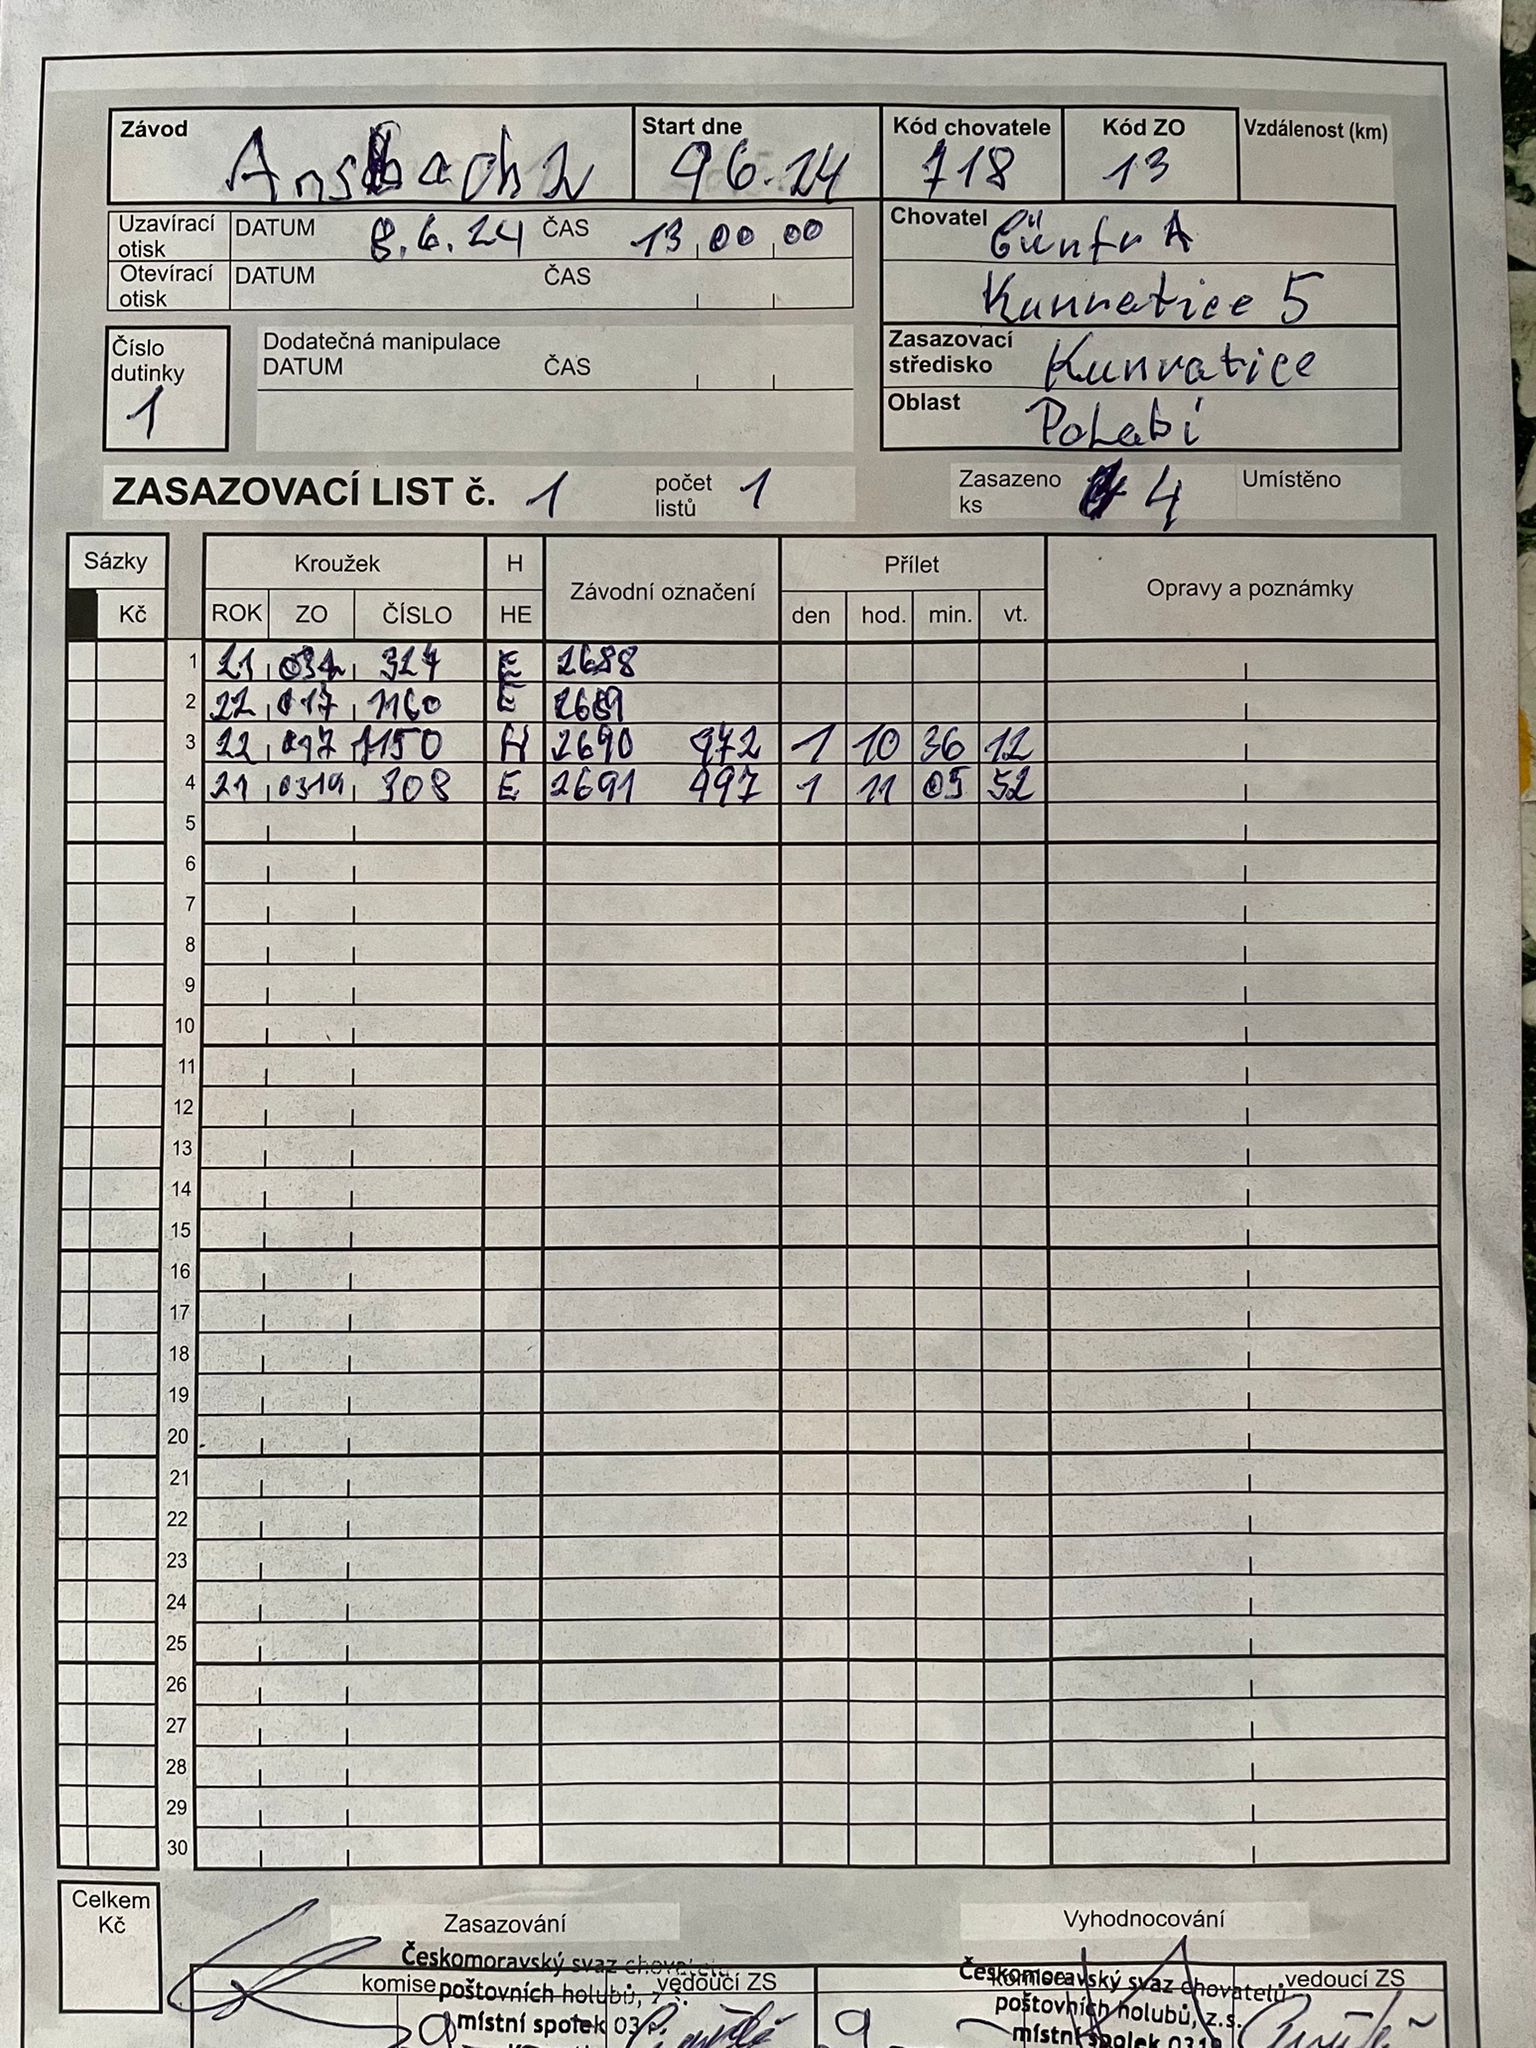 Závod Start dne Kód chovatele Kód ZO Vzdálenost (km)
Ansbach 2 9 6. 24 718 13
Uzavírací otisk DATUM 8. 6. 24 ČAS 13 00 00
Otevírací otisk DATUM ČAS
Chovatel A
Kunratice 5
Číslo dutinky 1
Dodatečná manipulace
DATUM ČAS
Zasazovací středisko Kunratice
Oblast PoLabí
ZASAZOVACÍ LIST č. 1 počet listů 1 Zasazeno ks 4 Umístěno
Sázky Kroužek H Závodní označení Přílet Opravy a poznámky
Kč ROK ZO ČÍSLO HE den hod. min. vt.
1 21 327 E 2688
2 22 017 1160 E 2689
3 22 017 1150 H 2690 972 1 10 36 12
4 21 0319 308 E 2691 997 1 11 05 52
5
6
7
8
9
10
11
12
13
14
15
16
17
18
19
20
21
22
23
24
25
26
27
28
29
30
Celkem Kč
Zasazování Vyhodnocování
Českomoravský svaz chovatelů Českomoravský svaz chovatelů
komise poštovních holubů, z.s. vedoucí ZS komise vedoucí ZS
místní spolek 03 poštovních holubů, z.s.
místní spolek 0319